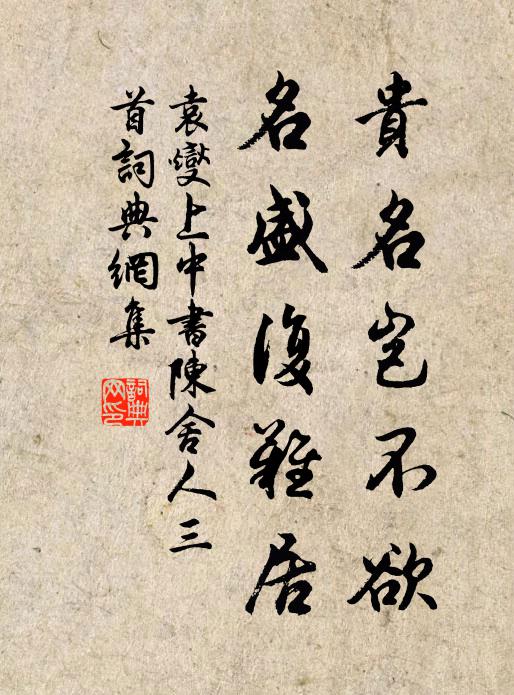 貴名岂不欲
名盛復難居
袁燮上中書陳舍人三
首詞典網集
詞典
网印